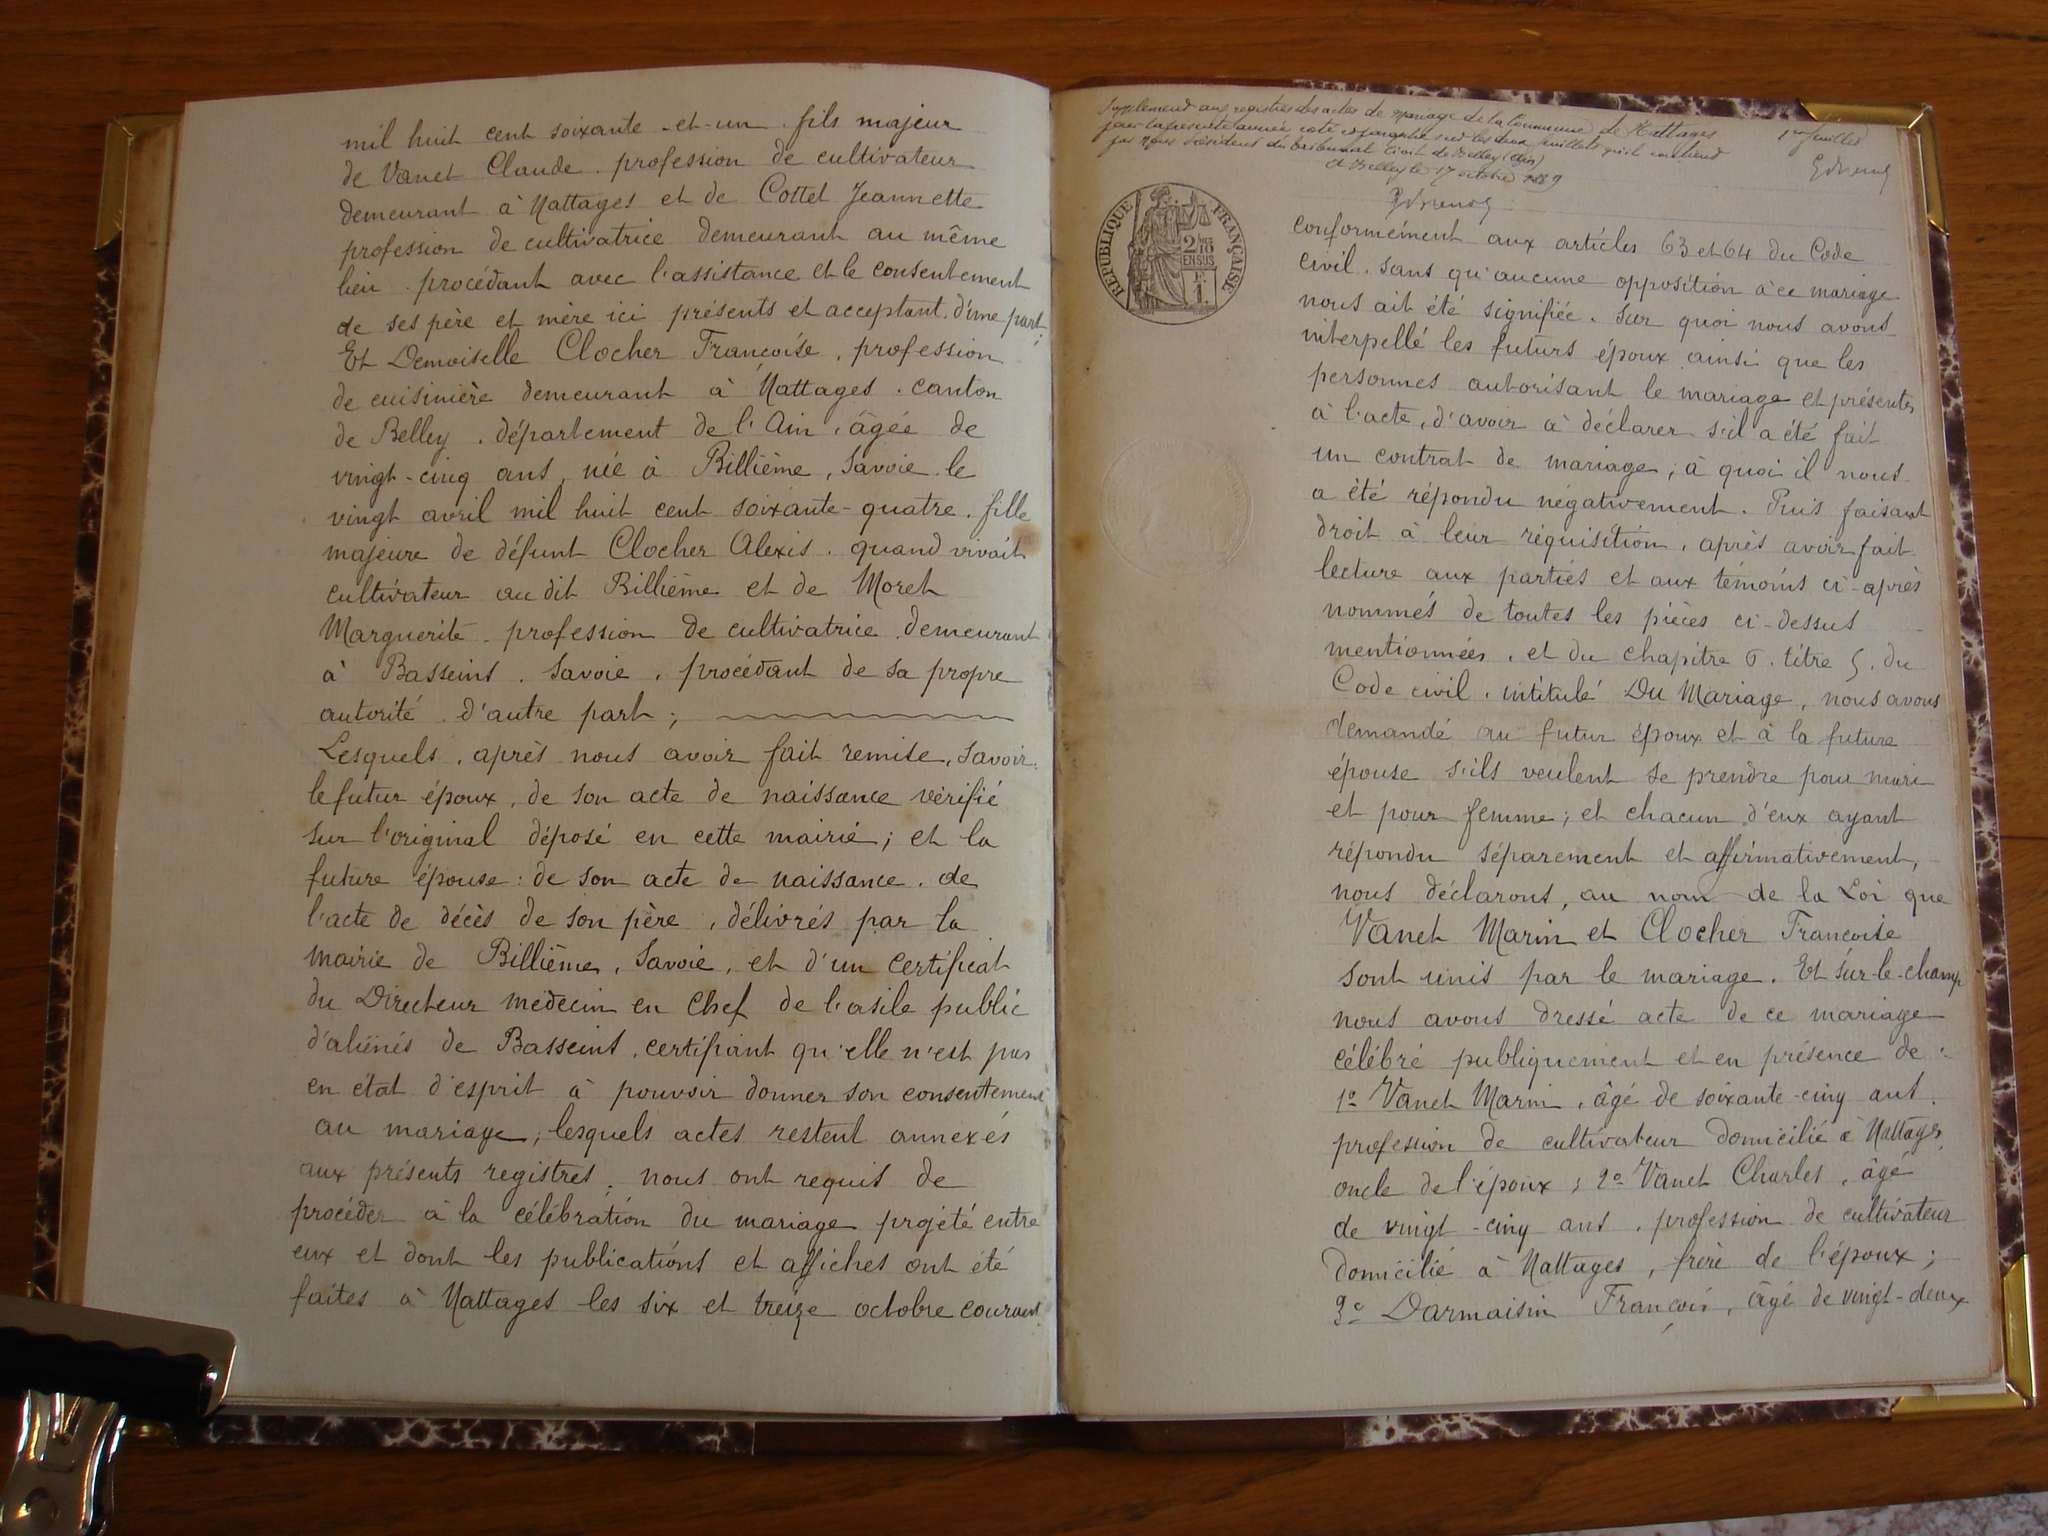 mil huit cent soixante-et-un. fils majeur
de Vanet Claude. profession de cultivateur
demeurant à Nattages et de Cottet Jeannette
profession de cultivatrice demeurant au même
lieu. procédant avec l'assistance et le consentement
de ses père et mère ici présents et acceptant. d'une part;
Et Demoiselle Clocher Françoise, profession
de cuisinière demeurant à Nattages. canton
de Belley. département de l'Ain, âgée de
vingt-cinq ans, née à Billième, Savoie. le
vingt avril mil huit cent soixante-quatre. fille
majeure de défunt Clocher Alexis. quand vivait
cultivateur au dit Billième et de Moret
Marguerite. profession de cultivatrice demeurant
à Bassens. Savoie, procédant de sa propre
autorité. d'autre part;
Lesquels, après nous avoir fait remise, Savoir:
le futur époux, de son acte de naissance vérifié
sur l'original déposé en cette mairie; et la
future épouse: de son acte de naissance. de
l'acte de décès de son père, délivrés par la
mairie de Billième, Savoie, et d'un certificat
du Directeur médecin en Chef de l'asile public
d'aliénés de Bassens, certifiant qu'elle n'est pas
en état d'esprit à pouvoir donner son consentement
au mariage; lesquels actes restent annexés
aux présents registres. nous ont requis de
procéder à la célébration du mariage projeté entre
eux et dont les publications et affiches ont été
faites à Nattages les six et treize octobre courant
Supplement aux registres des actes de mariage de la Commune de Nattages
pour la présente année coté et paraphé sur les deux feuillets qu'il contient
par nous Président du tribunal Civil de Belley (Ain)
A Belley le 17 octobre 1889
1er feuillet
RÉPUBLIQUE FRANÇAISE
2/10
EN SUS
1 F.
conformément aux articles 63 et 64 du Code
civil. sans qu'aucune opposition à ce mariage
nous ait été signifiée. Sur quoi nous avons
interpellé les futurs époux ainsi que les
personnes autorisant le mariage et présentes
à l'acte, d'avoir à déclarer s'il a été fait
un contrat de mariage; à quoi il nous
a été répondu négativement. Puis faisant
droit à leur réquisition, après avoir fait
lecture aux parties et aux témoins ci-après
nommés de toutes les pièces ci-dessus
mentionnées, et du chapitre 6. titre 5. du
Code civil. intitulé Du Mariage, nous avons
demandé au futur époux et à la future
épouse s'ils veulent se prendre pour mari
et pour femme; et chacun d'eux ayant
répondu séparement et affirmativement,
nous déclarons, au nom de la Loi que
Vanet Marin et Clocher Françoise
sont unis par le mariage. Et sur-le-champ
nous avons dressé acte de ce mariage
célébré publiquement et en présence de:
1º Vanet Marin, âgé de soixante-cinq ans.
profession de cultivateur domicilié à Nattages
oncle de l'époux; 2º Vanet Charles, âgé
de vingt-cinq ans, profession de cultivateur
domicilié à Nattages, frère de l'époux;
3º Darmaisin François, âgé de vingt-deux